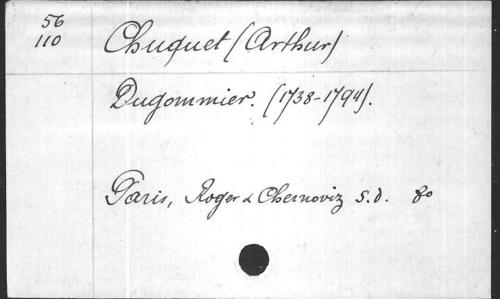 56
110
Chuquet (Arthur)
Dugommier. (1738-1794).
Paris, Roger & Chernoviz s.d. 8o